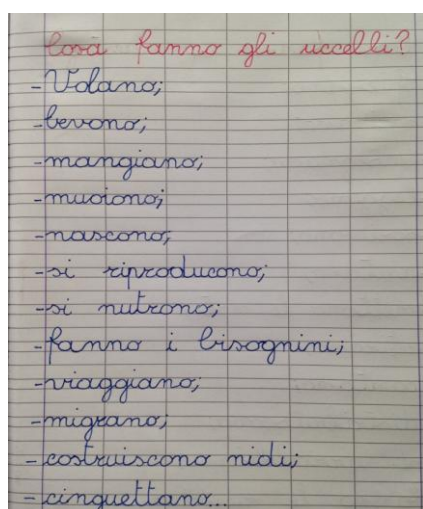 Cosa fanno gli uccelli?
-Volano;
-bevono;
-mangiano;
-muoiono;
-nascono;
-si riproducono;
-si nutrono;
-fanno i bisognini;
-viaggiano;
-migrano;
-costruiscono nidi;
-cinguettano...